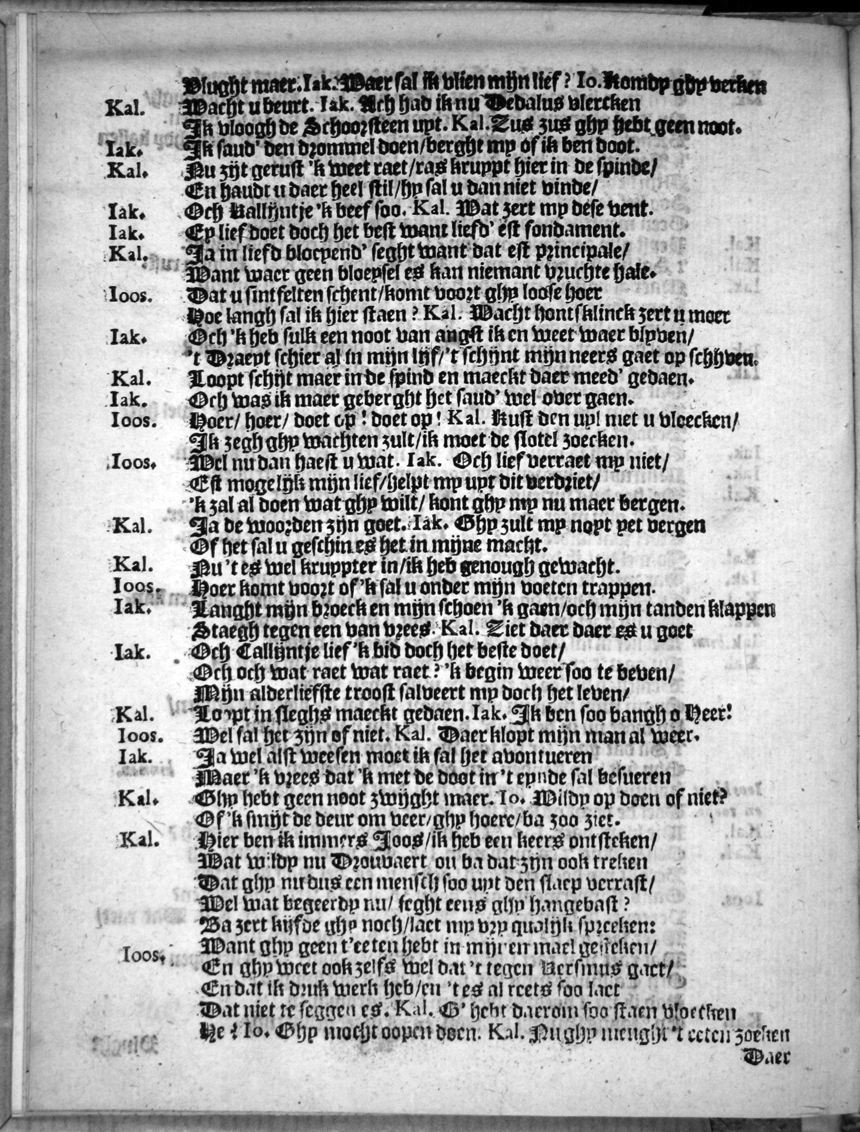 Vlught maer. Iak. Waer sal ik vlien mijn lief? Io. Komdy ghy verken
Kal. Wacht u beurt. Iak. Ach had ik nu Dedalus vlercken
Ik vloogh de Schoorsteen uyt. Kal. Zus zus ghy hebt geen noot.
Iak. Ik saud' den drommel doen/berght my of ik ben doot.
Kal. Nu zijt gerust 'k weet raet/ras kruppt hier in de spinde/
En haudt u daer heel stil/hy sal u dan niet vinde/
Iak. Och Kallijntje 'k beef soo. Kal. Wat zert my dese vent.
Iak. Ey lief doet doch het best want liefd' est fondament.
Kal. Ja in liefd bloeyend' seght want dat est principale/
Want waer geen bloeysel es kan niemant vruchte hale.
Ioos. Dat u sint felten schent/komt voort ghy loose hoer
Hoe langh sal ik hier staen? Kal. Wacht hontsklinck zert u moer
Iak. Och 'k heb sulk een noot van angst ik en weet waer blyven/
't Draeyt schier al in mijn lijf/'t schijnt mijn neers gaet op schijven.
Kal. Loopt schijt maer in de spind en maeckt daer meed' gedaen.
Iak. Och was ik maer geberght het saud' wel over gaen.
Ioos. Hoer/ hoer/ doet op! doet op! Kal. Kust den uyl met u vloecken/
Ik zegh ghy wachten zult/ik moet de slotel zoecken.
Ioos. Wel nu dan haest u wat. Iak. Och lief verraet my niet/
Est mogelijk mijn lief/helpt my uyt dit verdriet/
'k zal al doen wat ghy wilt/ kont ghy my nu maer bergen.
Kal. Ja de woorden zijn goet. Iak. Ghy zult my noyt yet vergen
Of het sal u geschin es het in mijne macht.
Kal. Nu 't es wel kruypter in/ik heb genough gewacht.
Ioos. Hoer komt voort of 'k sal u onder mijn voeten trappen.
Iak. Langht mijn broeck en mijn schoen 'k gaen/och mijn tanden klappen
Staegh tegen een van vrees. Kal. Ziet daer daer es u goet
Iak. Och Callijntje lief 'k bid doch het beste doet/
Och och wat raet wat raet? 'k begin weer soo te beven/
Mijn alderliefste troost salveert my doch het leven/
Kal. Loopt in sleghs maeckt gedaen. Iak. Ik ben soo bangh o Heer!
Ioos. Wel sal het zijn of niet. Kal. Daer klopt mijn man al weer.
Iak. Ja wel alst weesen moet ik sal het avontueren
Maer 'k vrees dat 'k met de doot in 't eynde sal besueren
Kal. Ghy hebt geen noot zwijght maer. Io. Wildy op doen of niet?
Of 'k smijt de deur om veer/ghy hoere/ba zoo ziet.
Kal. Hier ben ik immers Joos/ik heb een keers ontsteken/
Wat wildy nu Drouvaert ou ba dat zijn ook treken
Dat ghy nu dus een mensch soo uyt den slaep verrast/
Wel wat begeerdy nu/ seght eens ghy hangebast?
Ba zert kijfde ghy noch/laet my vry qualijk spreeken:
Ioos. Want ghy geen t'eeten hebt in mijnen mael gesteken/
En ghy weet ook zelfs wel dat 't tegen Kersmus gaet/
En dat ik druk werk heb/en 't es al reets soo laet
Dat niet te seggen es. Kal. G' hebt daerom soo staen vloecken
He? Io. Ghy mocht oopen doen. Kal. Nu ghy meught 't eeten zoeken
Daer